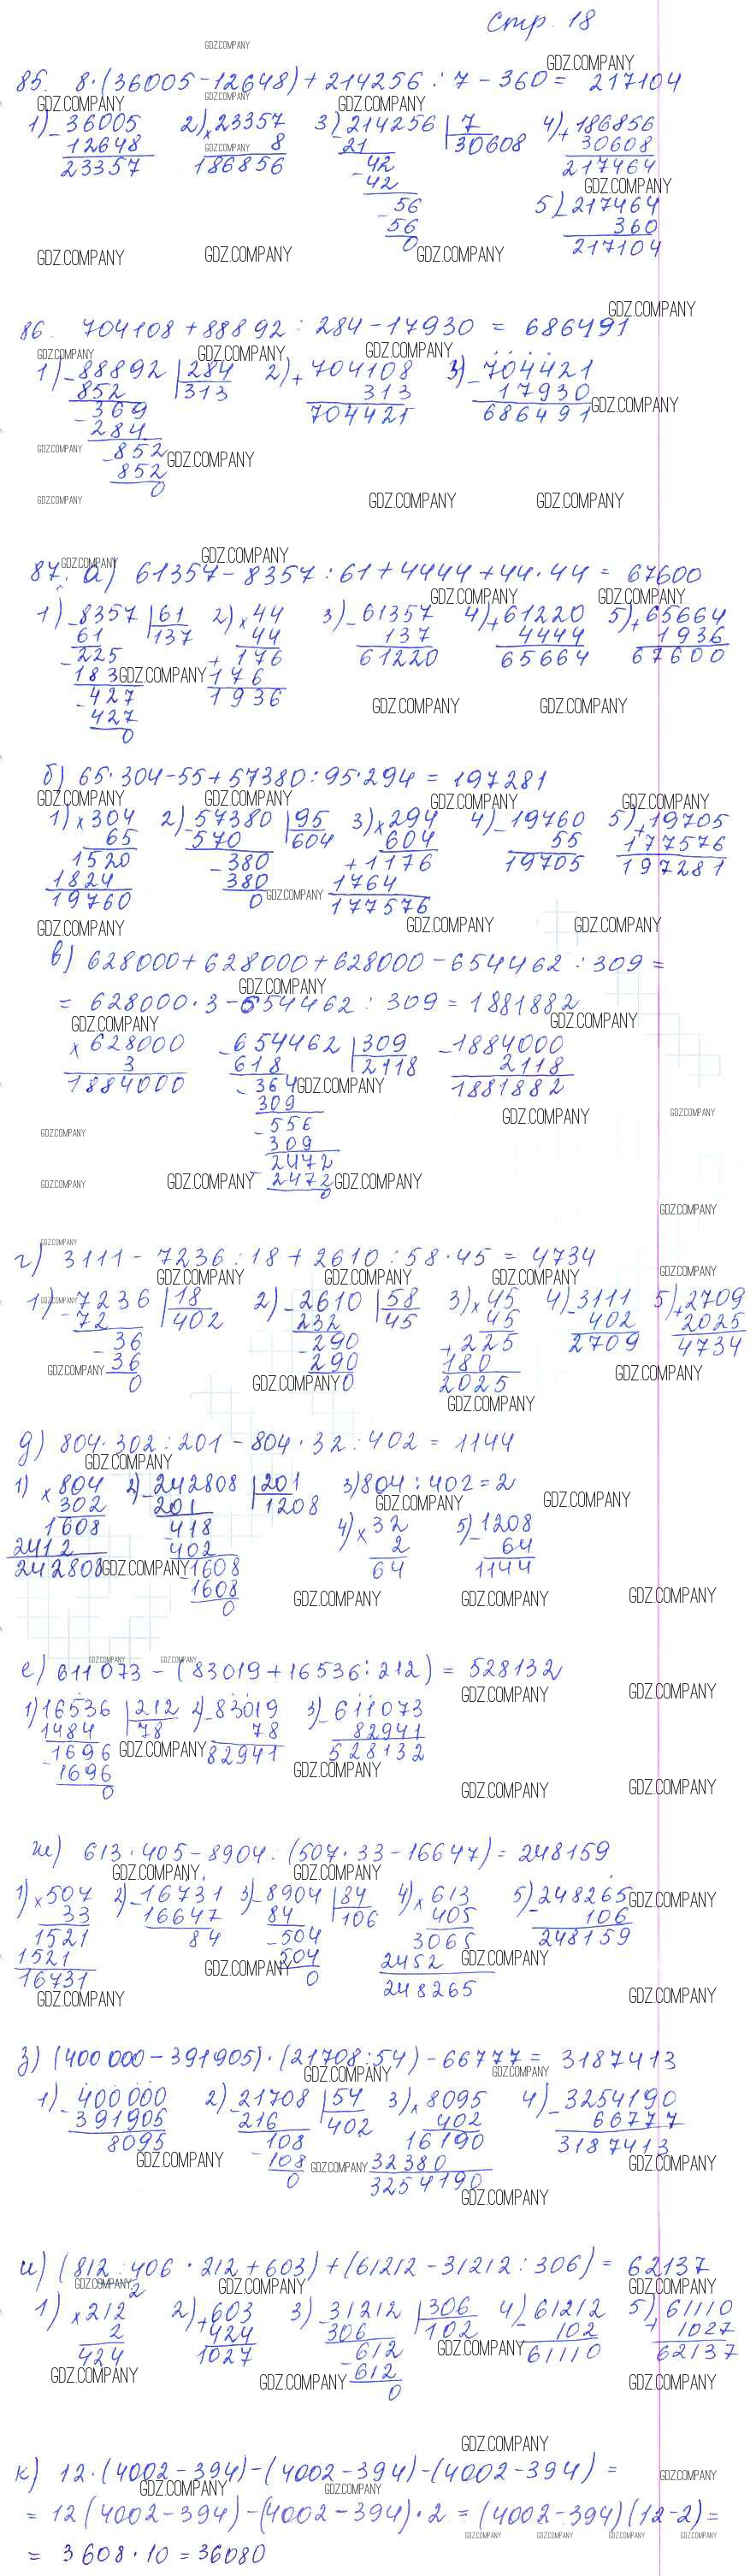 Стр. 18
85. 8·(36005-12648)+214256:7-360= 217104
1) -36005 2) ×23357 3) -214256 |7 4) +186856
12648 8 21 30608 30608
23357 186856 42 217464
-42 5) -217464
56 360
-56 217104
0
86. 704108+88892:284-17930 = 686491
1) -88892 |284 2) +704108 3) -704421
852 313 313 17930
-369 704421 686491
284
-852
852
0
87. а) 61357-8357:61+4444+44·44 = 67600
1) -8357 |61 2) ×44 3) -61357 4) +61220 5) +65664
61 137 44 137 4444 1936
-225 +176 61220 65664 67600
183 176
-427 1936
427
0
б) 65·304-55+57380:95·294 = 197281
1) ×304 2) -57380 |95 3) ×294 4) -19760 5) +19705
65 570 604 604 55 177576
1520 -380 +1176 19705 197281
1824 380 1764
19760 0 177576
в) 628000+628000+628000-654462:309=
= 628000·3-654462:309=1881882
×628000 -654462 |309 -1884000
3 618 2118 2118
1884000 -364 1881882
309
-556
309
2472
-2472
0
г) 3111-7236:18+2610:58·45 = 4734
1) -7236 |18 2) -2610 |58 3) ×45 4) -3111 5) +2709
72 402 232 45 45 402 2025
-36 -290 +225 2709 4734
36 290 180
0 0 2025
д) 804·302:201-804·32:402=1144
1) ×804 2) -242808 |201 3) 804:402=2
302 201 1208
1608 418 4) ×32 5) -1208
2412 402 2 64
242808 -1608 64 1144
1608
0
е) 611073-(83019+16536:212) = 528132
1) 16536 |212 2) -83019 3) -611073
1484 78 78 82941
-1696 82941 528132
1696
0
ж) 613·405-8904:(507·33-16647)=248159
1) ×507 2) -16731 3) -8904 |84 4) ×613 5) -248265
33 16647 84 106 405 106
1521 84 -504 3065 248159
1521 504 2452
16731 0 248265
з) (400000-391905)·(21708:54)-66777= 3187413
1) -400000 2) -21708 |54 3) ×8095 4) -3254190
391905 216 402 402 66777
8095 108 16190 3187413
-108 32380
0 3254190
и) (812:406·212+603)+(61212-31212:306)= 62137
2
1) ×212 2) +603 3) -31212 |306 4) -61212 5) +61110
2 424 306 102 102 1027
424 1027 -612 61110 62137
612
0
к) 12·(4002-394)-(4002-394)-(4002-394)=
= 12(4002-394)-(4002-394)·2 = (4002-394)(12-2)=
= 3608·10=36080
GDZ.COMPANY